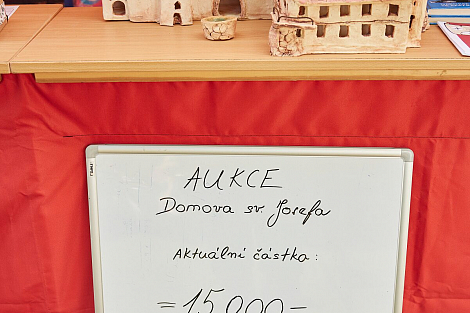 AUKCE
Domova sv. Josefa
Aktuální částka:
=15.000-